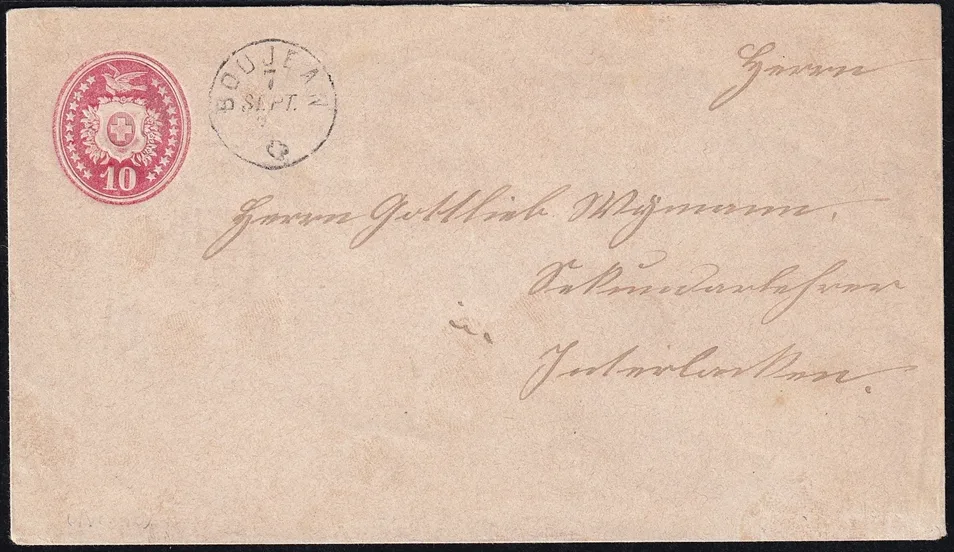 10
BOUJEAN
7
SEPT.
Herrn
Herrn Gottlieb Wÿmann.
Sekundarlehrer
in
Interlacken.